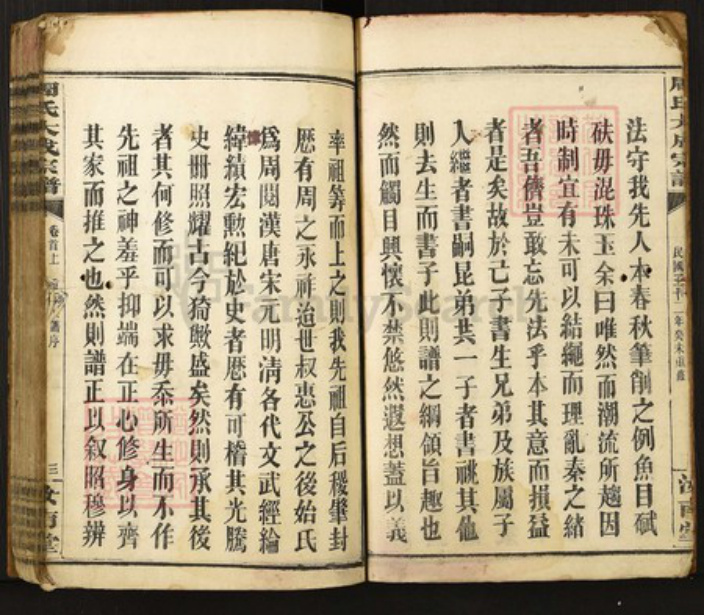 周氏大成宗譜
民國三十二年癸未重修
汝南堂
法守我先人本春秋筆削之例魚目碔
砆毋混珠玉余曰唯然而潮流所趨因
時制宜有未可以結繩而理亂秦之結
者吾儕豈敢忘先法乎本其意而損益
者是矣故於己子書生兄弟及族屬子
入繼者書嗣昆弟共一子者書祧其他
則去生而書子此則譜之綱領旨趣也
然而觸目興懷不禁悠然遐想蓋以義
率祖等而上之則我先祖自后稷肇封
歷有周之永祚治世叔惠公之後始氏
爲周閱漢唐宋元明清各代文武經綸
偉
緯績宏勲紀於史者歷有可稽其光騰
史册照耀古今猗歟盛矣然則承其後
者其何修而可以求毋忝所生而不作
先祖之神羞乎抑端在正心修身以齊
其家而推之也然則譜正以叙昭穆辨
周氏大成宗譜
卷首上
譜序
三
汝南堂
FamilySearch